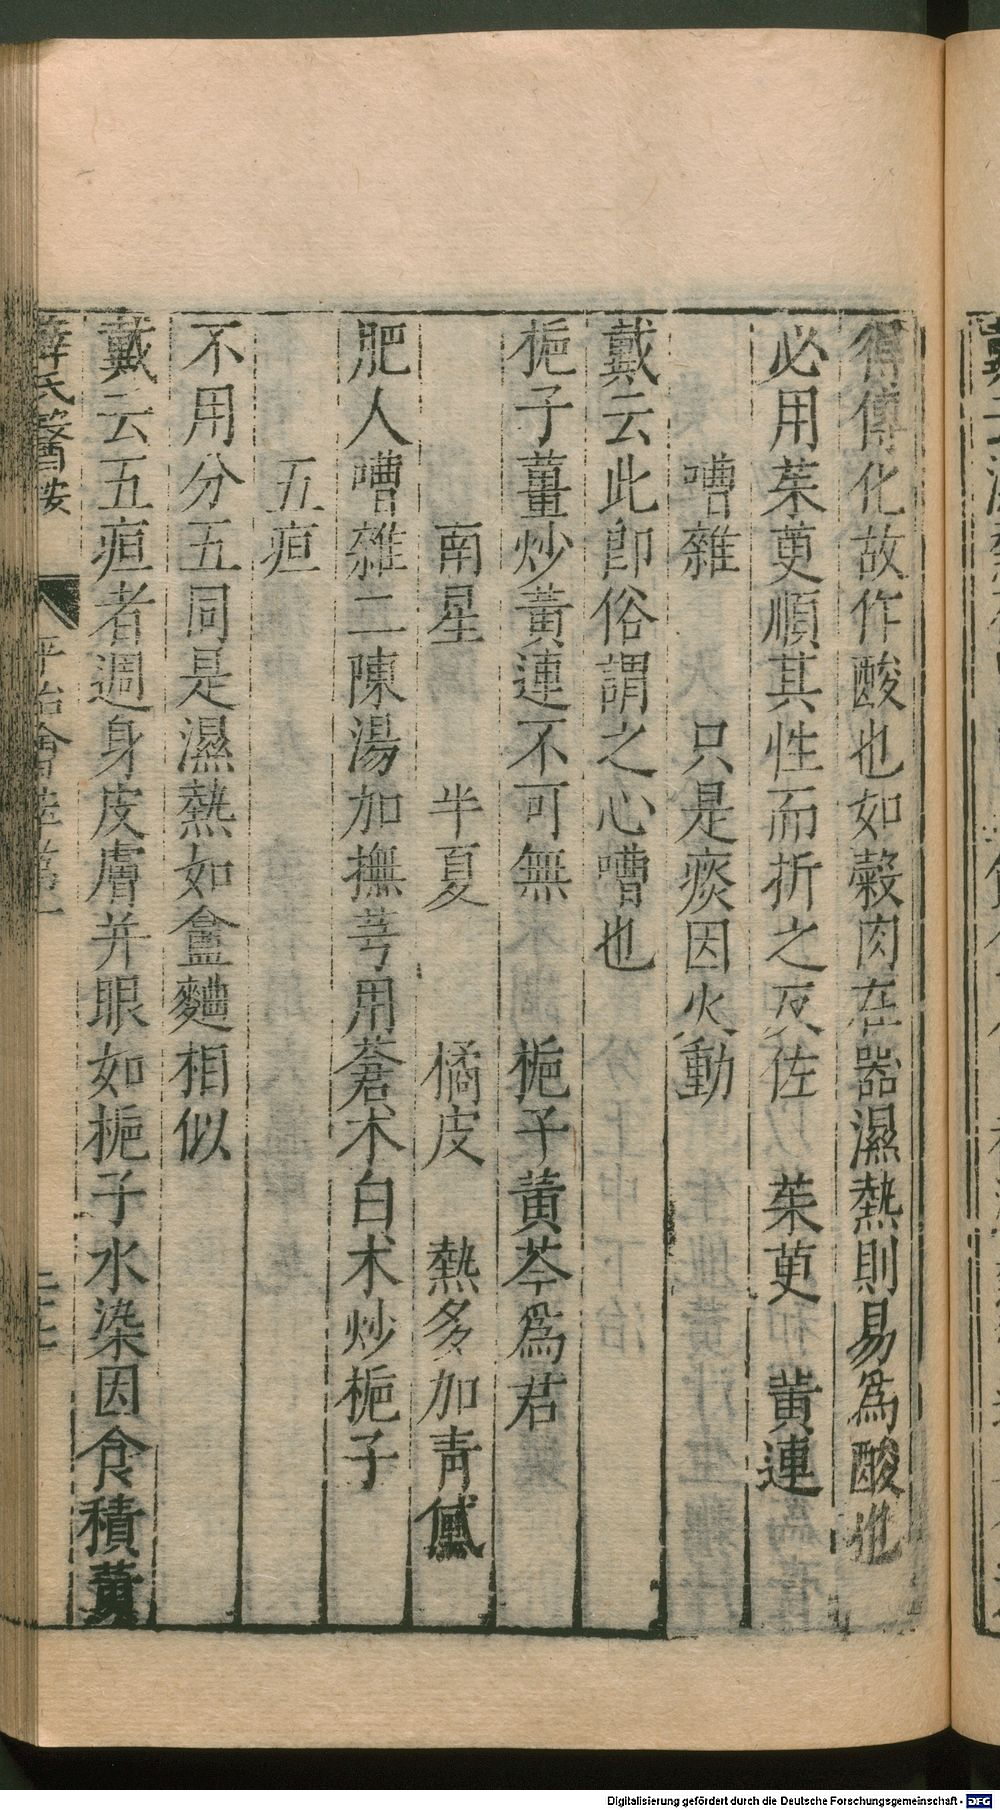 得傳化故作酸也如穀肉在器濕熱則易爲酸也
必用茱萸順其性而折之反佐　茱萸　黃連
嘈雜　　只是痰因火動
戴云此即俗謂之心嘈也
梔子薑炒黃連不可無　　梔子黃芩爲君
南星　　半夏　　橘皮　熱多加青黛
肥人嘈雜二陳湯加撫芎用蒼朮白朮炒梔子
五疸
不用分五同是濕熱如盦麯相似
戴云五疸者週身皮膚并眼如梔子水染因食積黃
薛氏醫按　平治會萃卷一
Digitalisierung gefördert durch die Deutsche Forschungsgemeinschaft - DFG